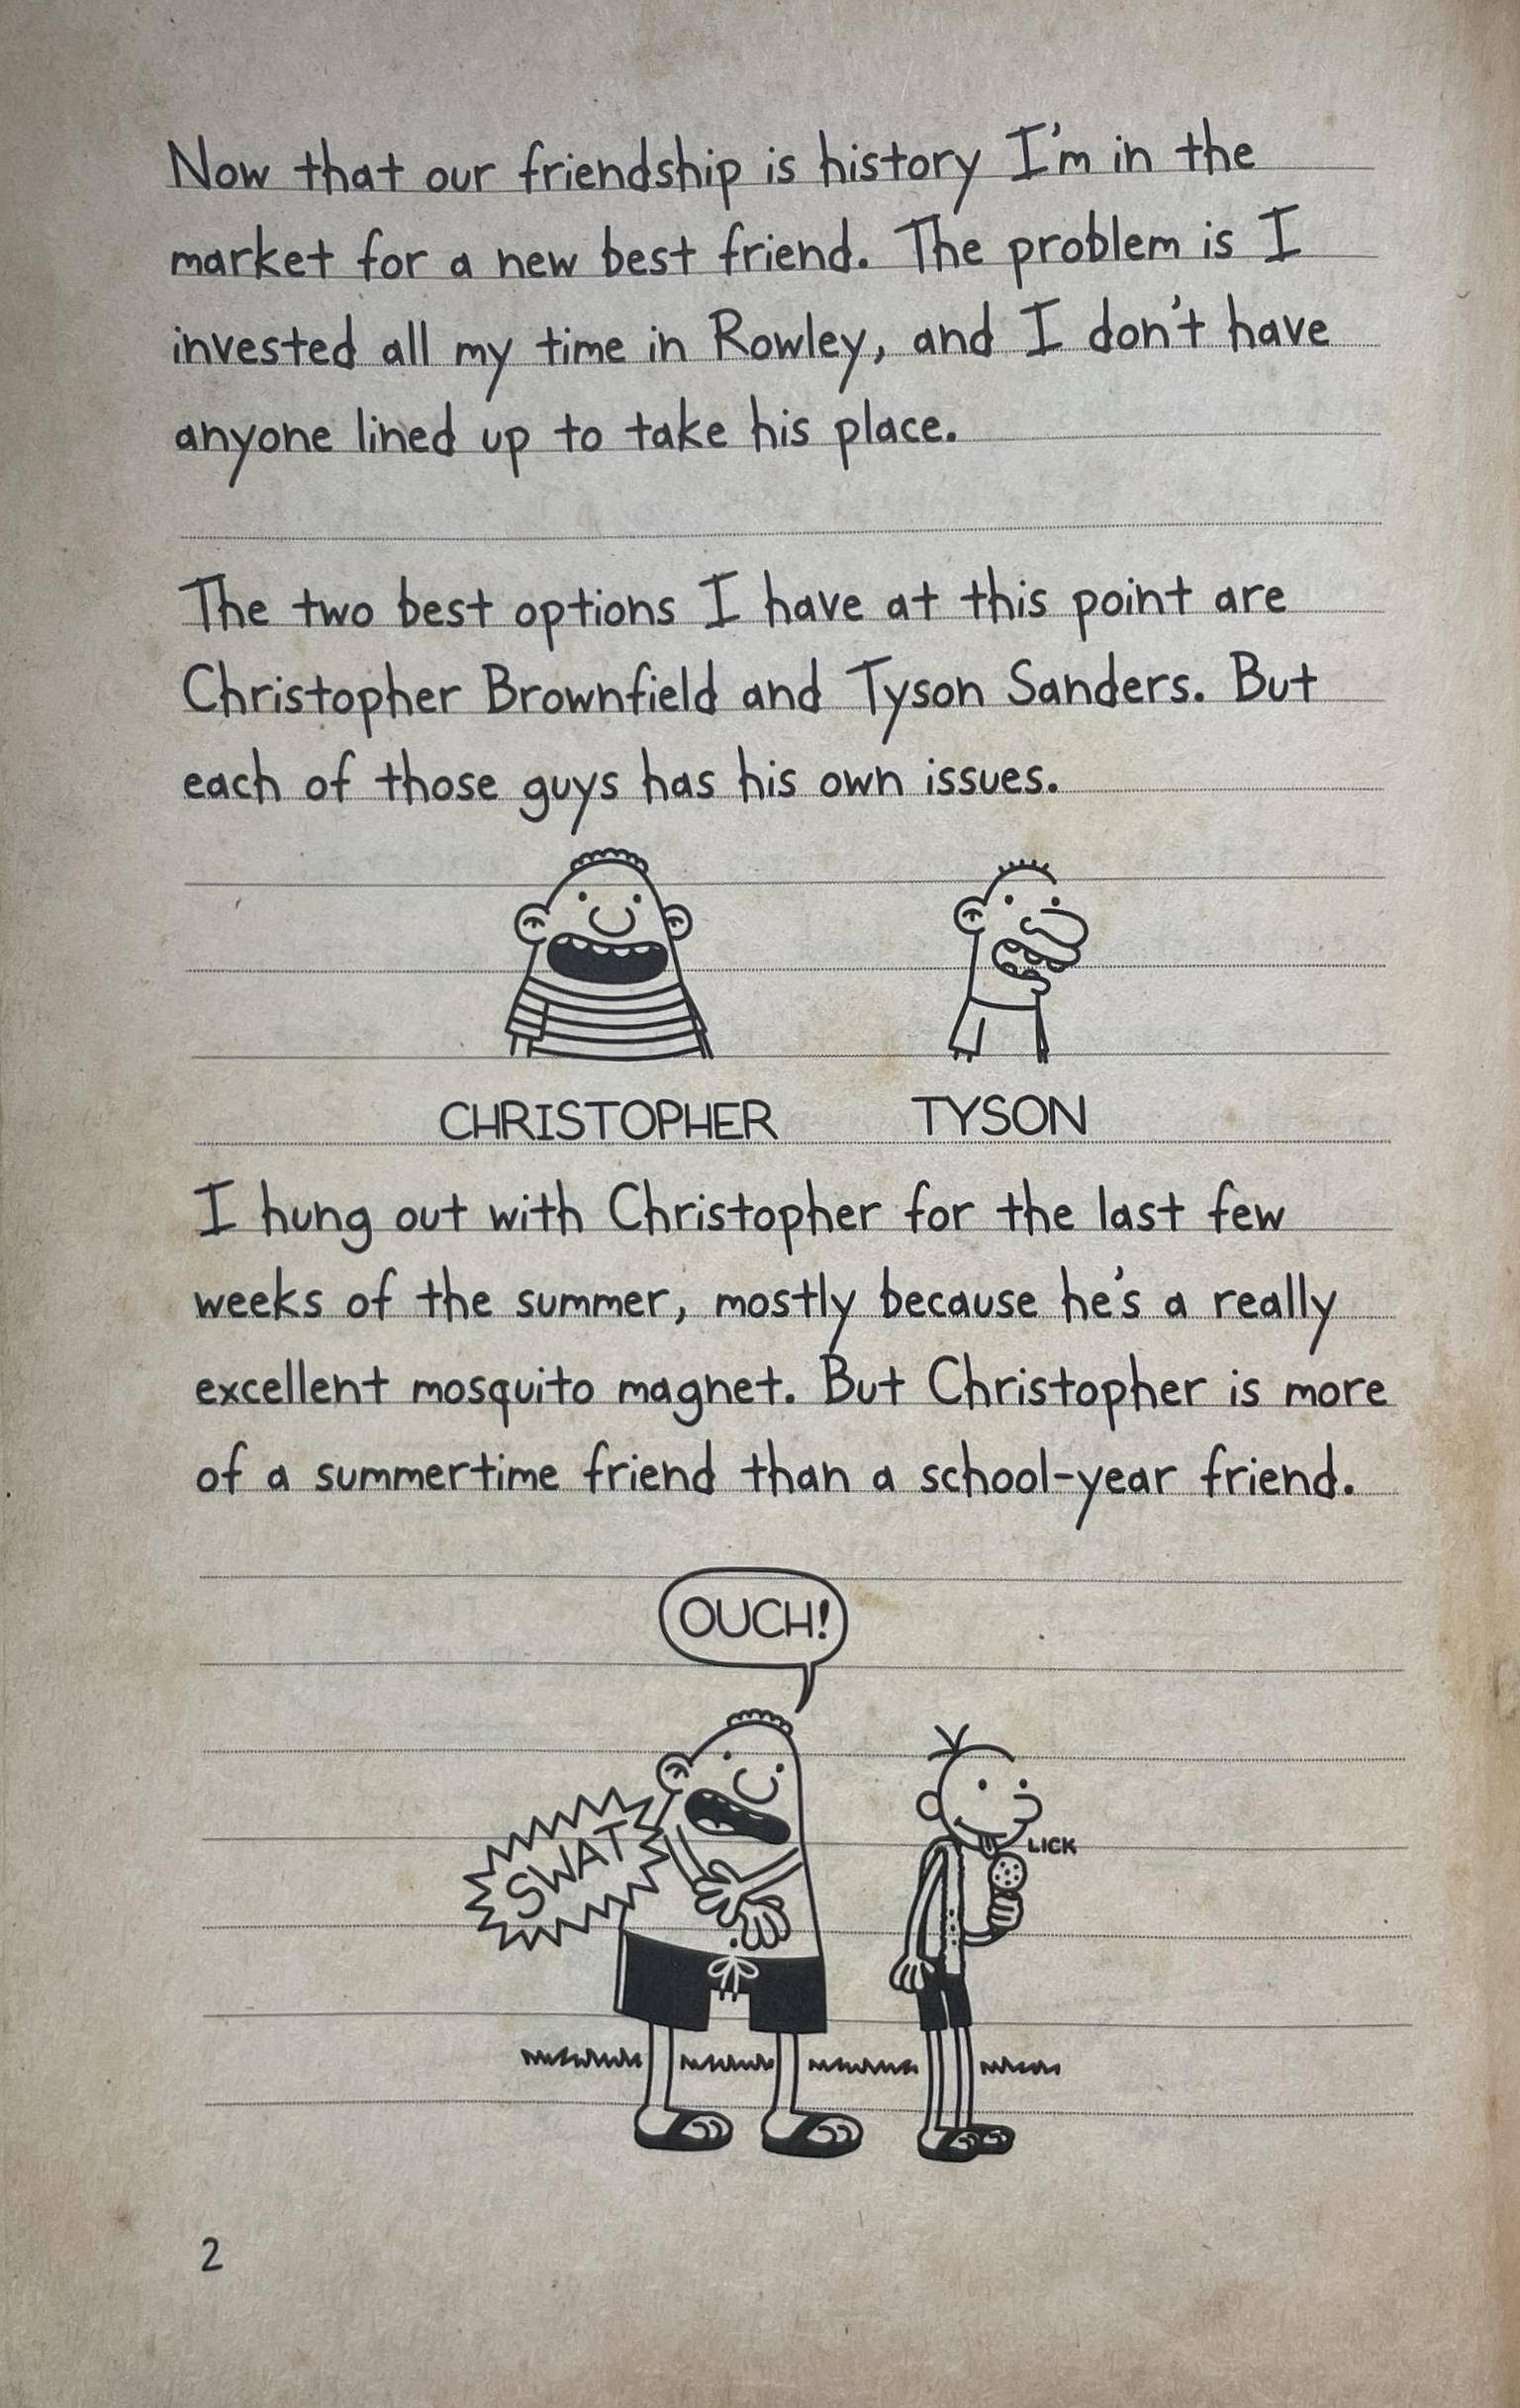 Now that our friendship is history I'm in the
market for a new best friend. The problem is I
invested all my time in Rowley, and I don't have
anyone lined up to take his place.
The two best options I have at this point are
Christopher Brownfield and Tyson Sanders. But
each of those guys has his own issues.
CHRISTOPHER TYSON
I hung out with Christopher for the last few
weeks of the summer, mostly because he's a really
excellent mosquito magnet. But Christopher is more
of a summertime friend than a school-year friend.
OUCH!
SWAT
LICK
2